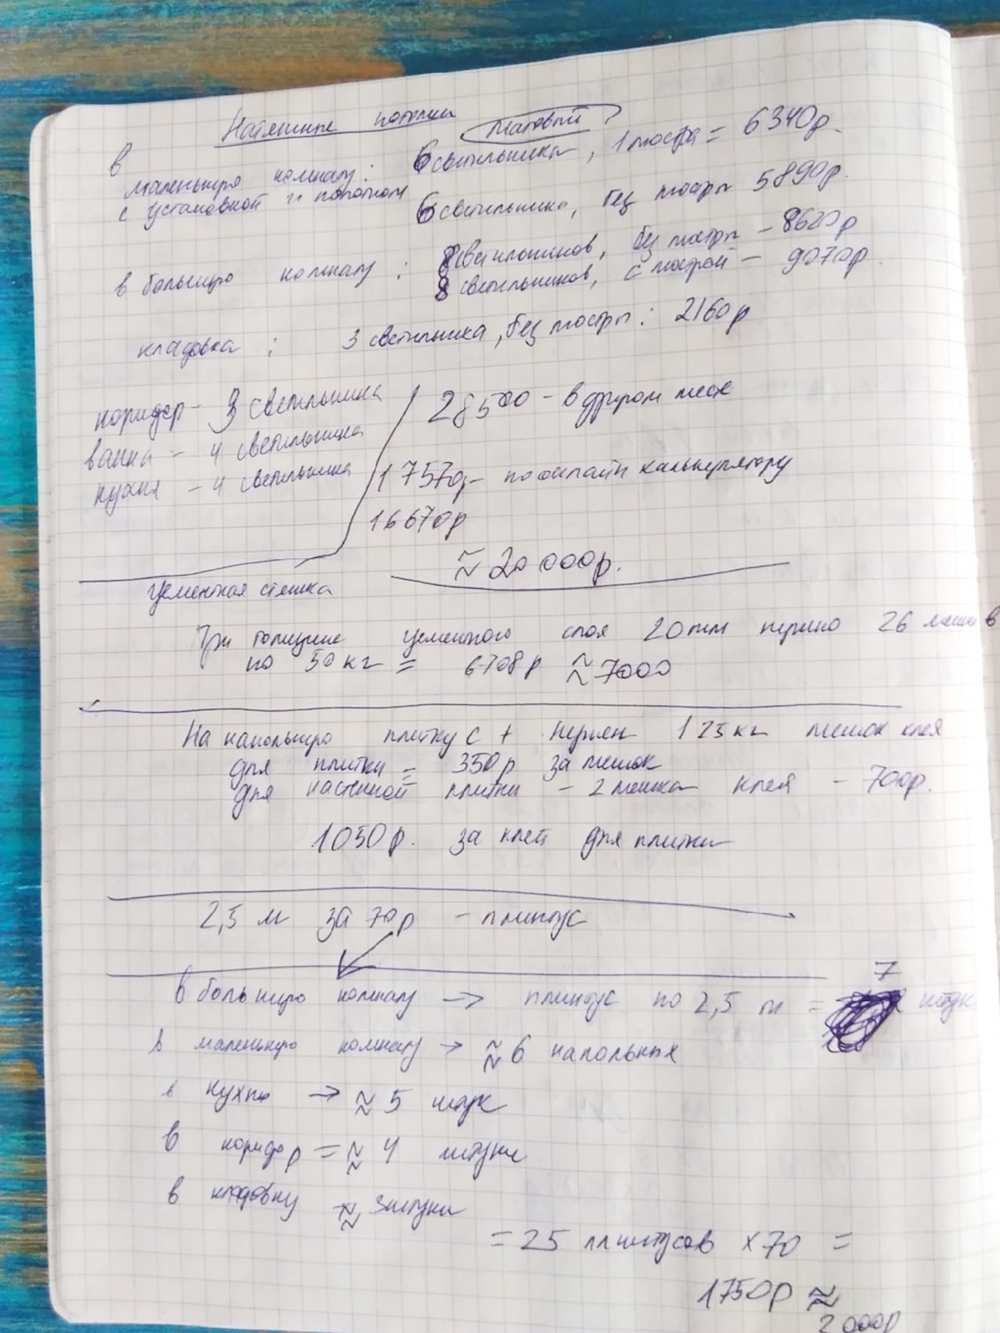 Натяжные потолки матовый
в маленькую комнату: 6 светильника, 1 люстра = 6340р.
с установкой и потолком 6 светильника, без люстры 5890р.
в большую комнату: 8 светильников, без люстры - 8620р
8 светильников, с люстрой - 9070р.
кладовка: 3 светильника, без люстры: 2160р
коридор - 3 светильника
ванна - 4 светильника
кухня - 4 светильника
28500 - в другом месте
17570р - по онлайн калькулятору
16670р
≈ 20 000р.
Цементная стяжка
При толщине цементного слоя 20мм нужно 26 мешков
по 50 кг = 6708р ≈ 7000
На напольную плитку нужен 1 25кг мешок клея
для плитки = 350р за мешок
для настиной плитки - 2 мешка клея - 700р.
1050р. за клей для плитки
2,5 м за 70р - плинтус
в большую комнату → плинтус по 2,5 м = 7 штук
в маленькую комнату → ≈ 6 напольных
в кухню → ≈ 5 штук
в коридор = ≈ 4 штуки
в кладовку ≈ 3 штуки
= 25 плинтусов × 70 =
1750р ≈
2000р